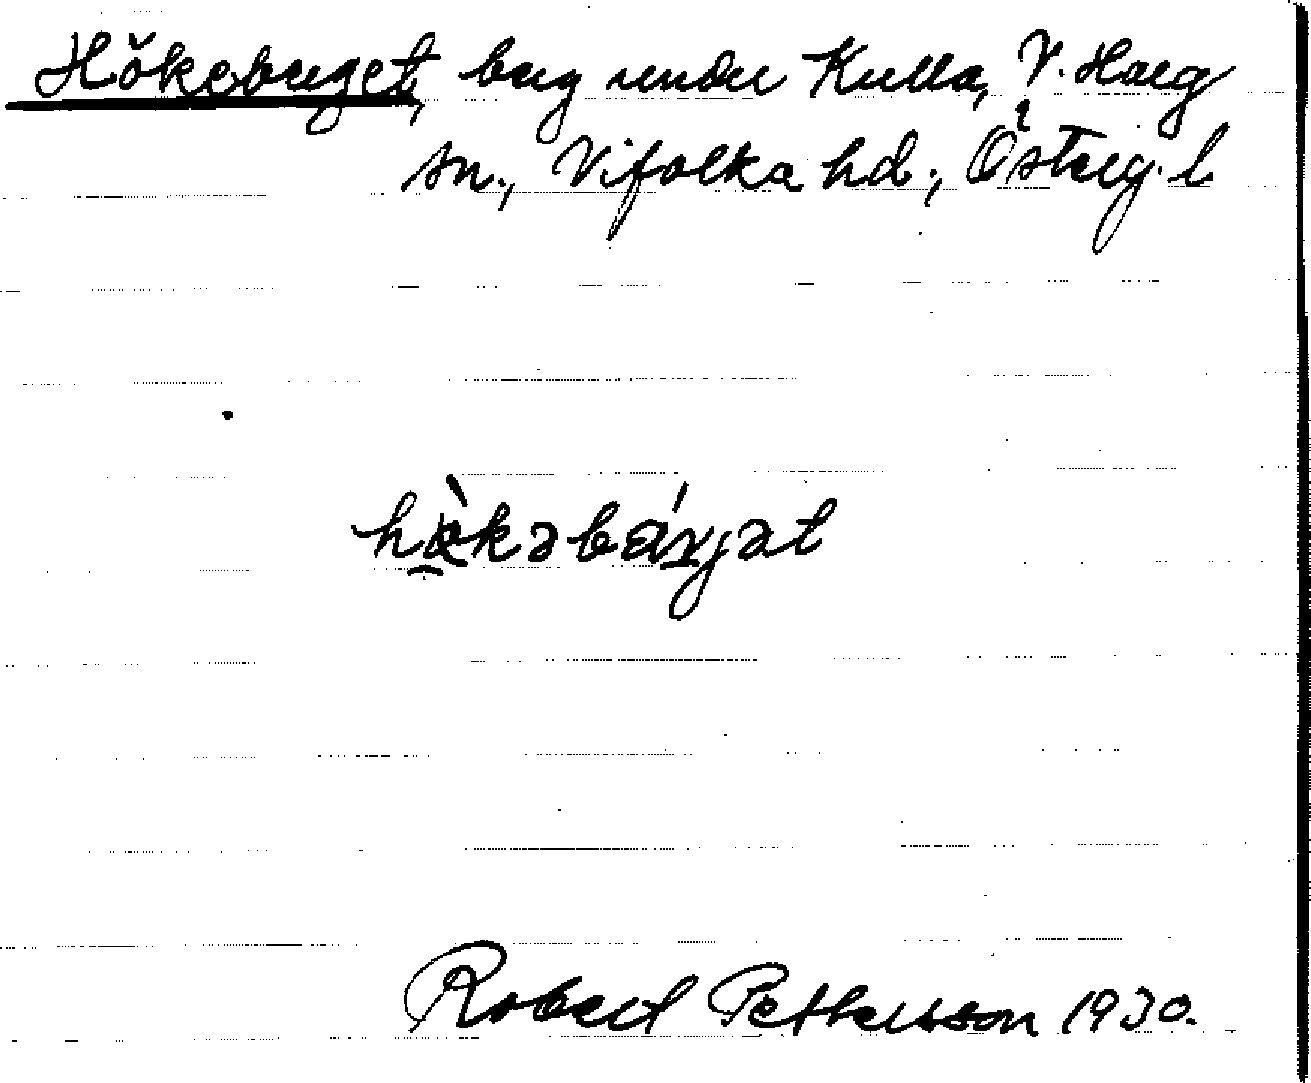 Hökeberget, berg under Kulla, V. Harg
sn., Vifolka hd., Österg. l
hökəbärjət
Robert Pettersson 1930.